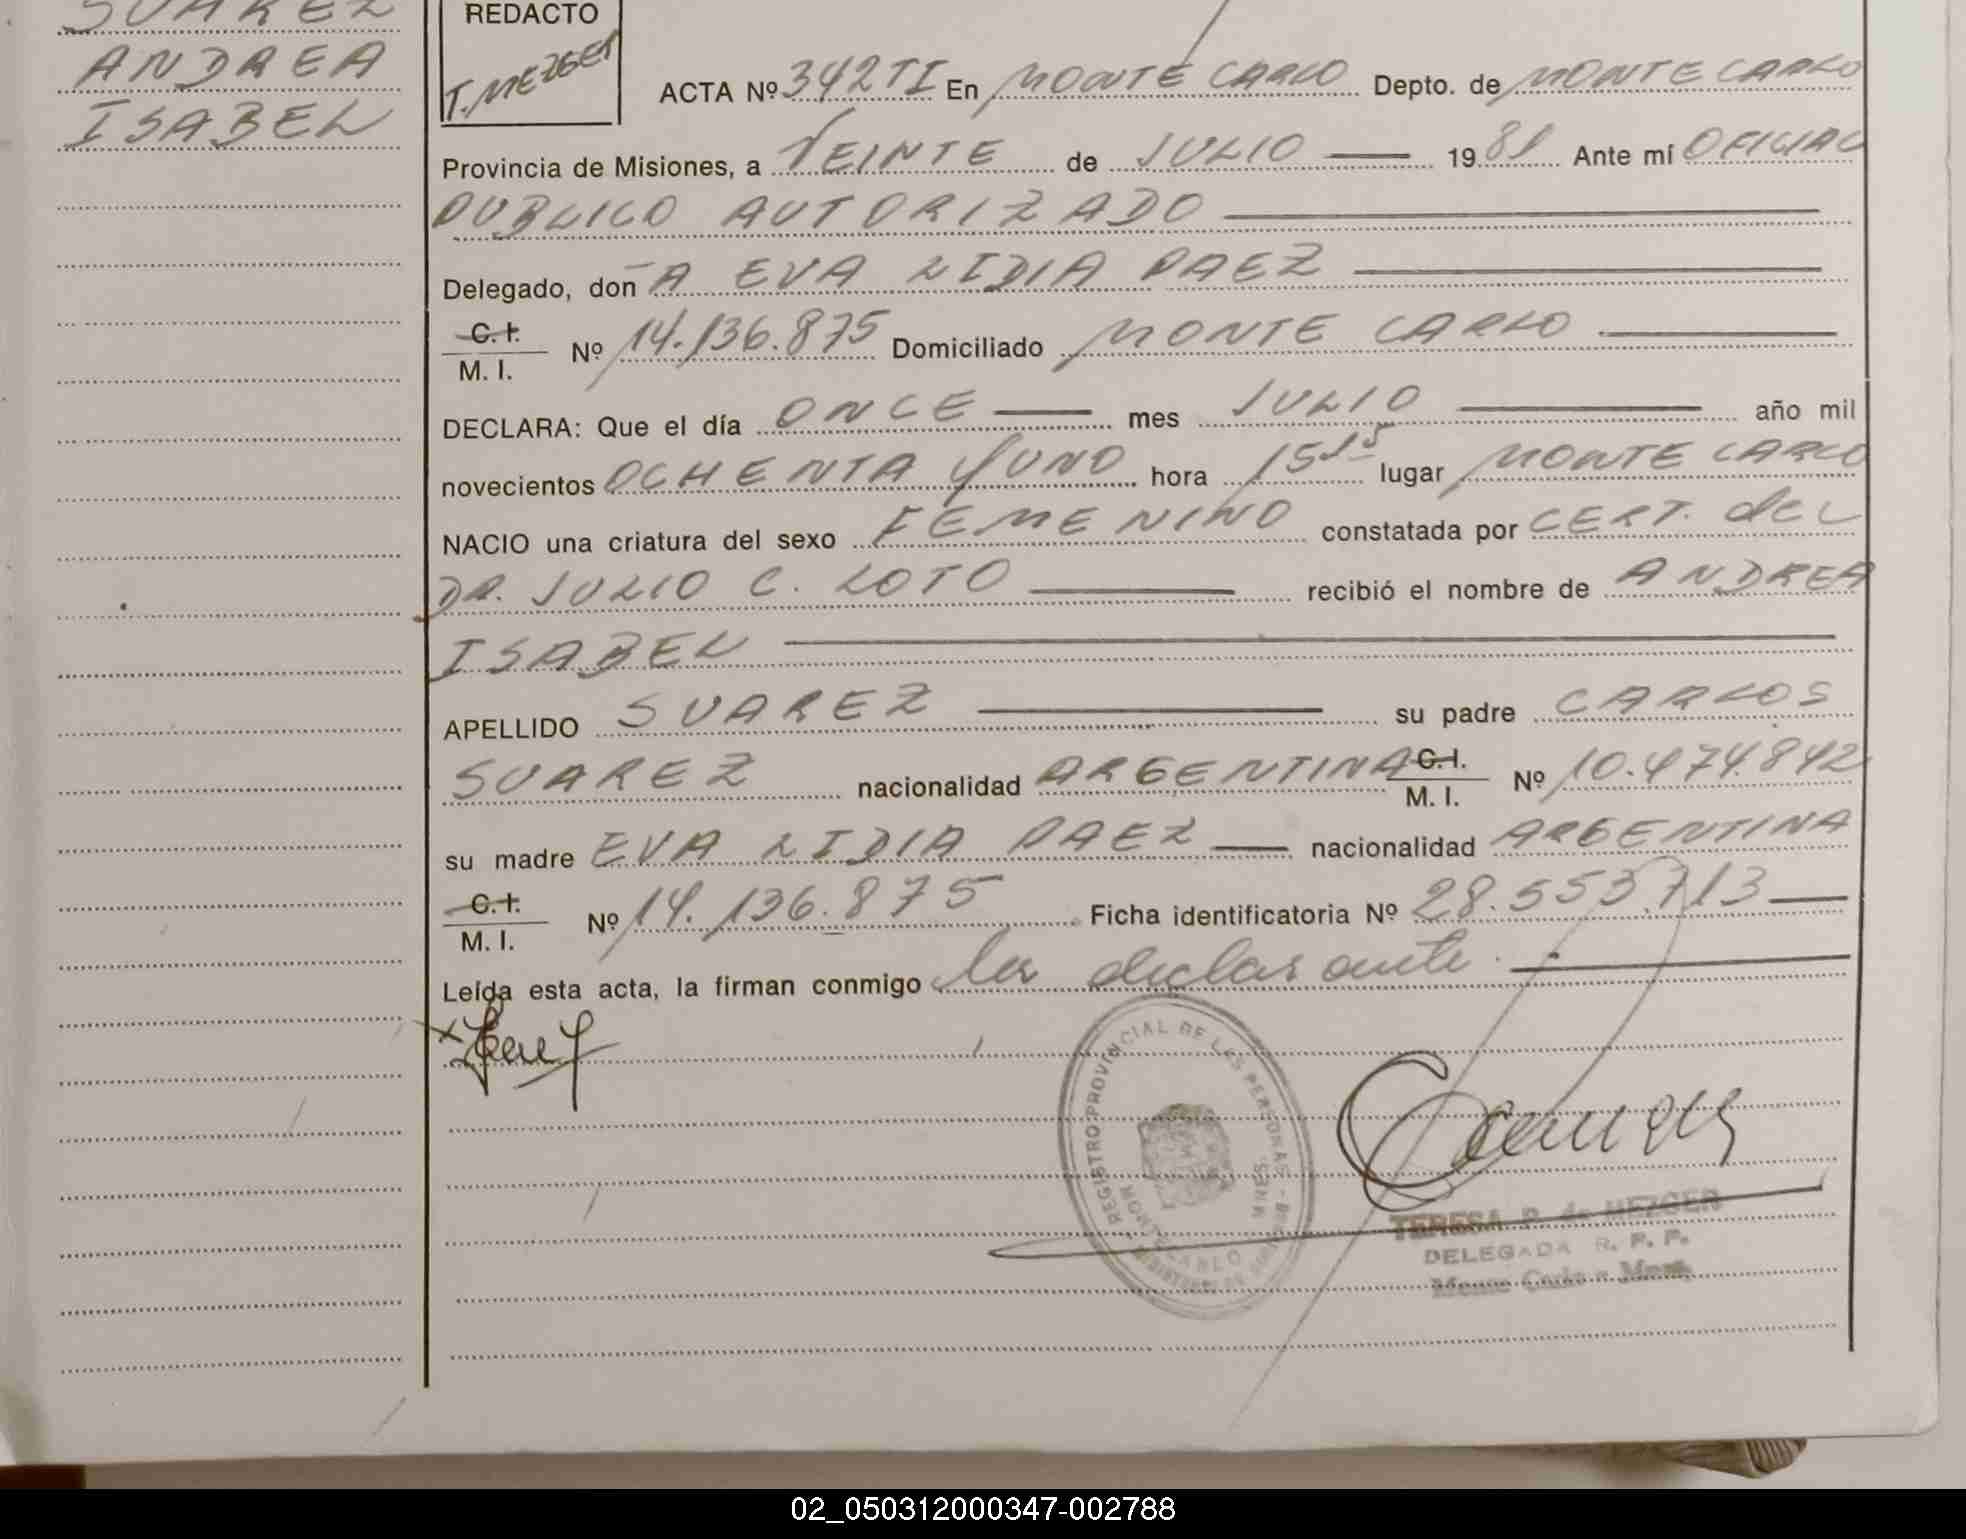 SUAREZ
ANDREA
ISABEL
REDACTO
T. MEZGER
ACTA Nº 342 TI En MONTE CARLO Depto. de MONTE CARLO
Provincia de Misiones, a VEINTE de JULIO 1981 Ante mí OFICIAL
PUBLICO AUTORIZADO
Delegado, don A EVA LIDIA PAEZ
C.I. M.I. Nº 14.136.875 Domiciliado MONTE CARLO
DECLARA: Que el día ONCE mes JULIO año mil
novecientos OCHENTA Y UNO hora 15 15 lugar MONTE CARLO
NACIO una criatura del sexo FEMENINO constatada por CERT. del
DR. JULIO C. LOTO recibió el nombre de ANDREA
ISABEL
APELLIDO SUAREZ su padre CARLOS
SUAREZ nacionalidad ARGENTINA C.I. M.I. Nº 10.474.842
su madre EVA LIDIA PAEZ nacionalidad ARGENTINA
C.I. M.I. Nº 14.136.875 Ficha identificatoria Nº 28.553.713
Leída esta acta, la firman conmigo la declarante.
REGISTRO PROVINCIAL DE LAS PERSONAS - MNES.
TERESA P. de MEZGER
DELEGADA R. P. P.
Monte Carlo - Mnes.
02_050312000347-002788